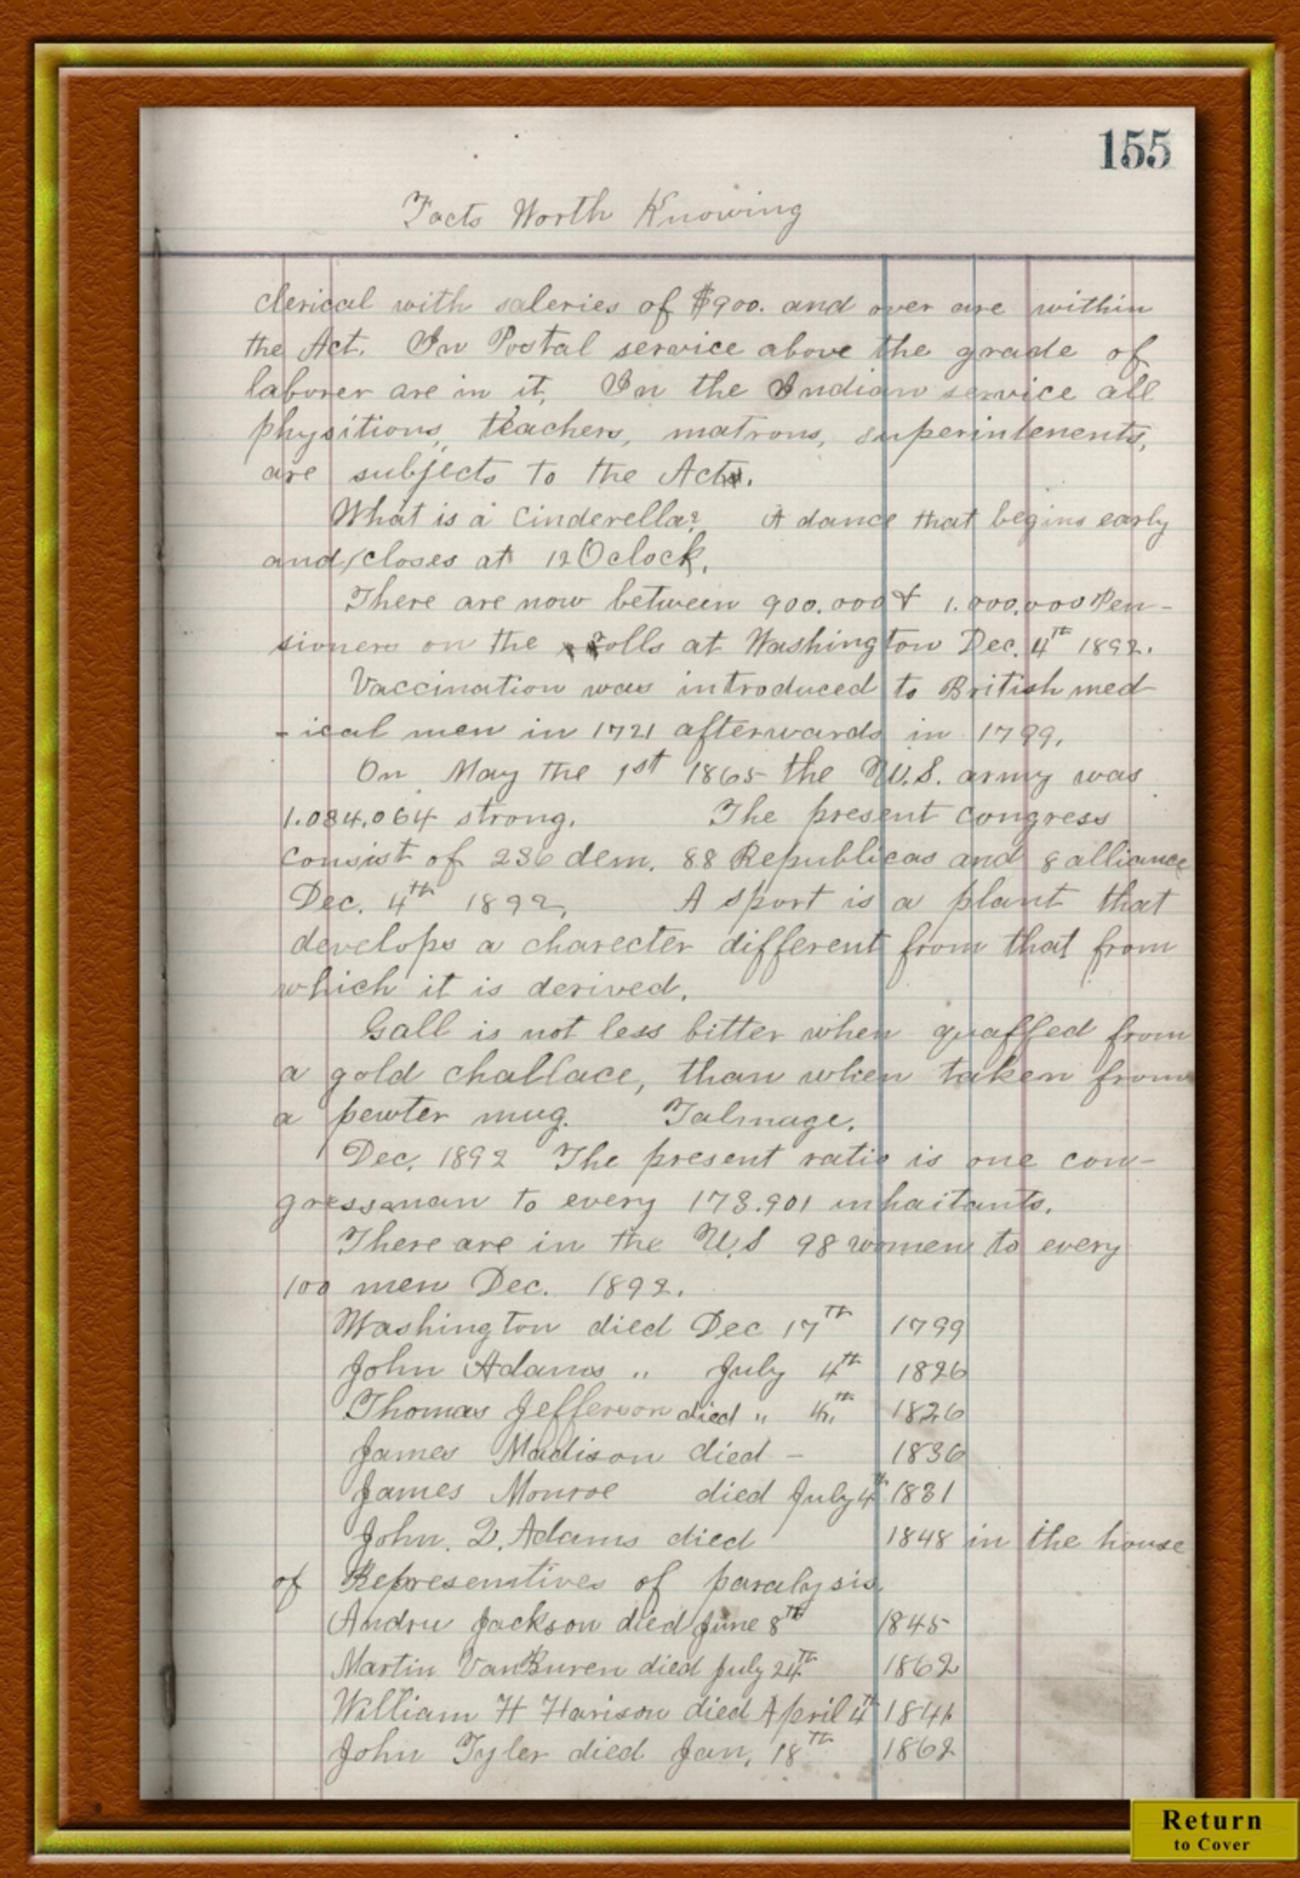 155
Facts Worth Knowing
clerical with saleries of $900. and over are within
the Act. In Postal service above the grade of
laborer are in it, In the Indian service all
physitions, teachers, matrons, superintenents,
are subjects to the Act.
What is a Cinderella? A dance that begins early
and closes at 12 Oclock.
There are now between 900.000 & 1.000.000 Pen-
sioners on the rolls at Washington Dec. 4th 1892.
Vaccination was introduced to British med
-ical men in 1721 afterwards in 1799.
On May the 1st 1865 the U.S. army was
1.084.064 strong. The present Congress
consist of 236 dem. 88 Republicas and 8 alliance
Dec. 4th 1892, A sport is a plant that
develops a charecter different from that from
which it is derived.
Gall is not less bitter when quaffed from
a gold challace, than when taken from
a pewter mug. Talmage.
Dec. 1892 The present ratio is one con-
gressman to every 173.901 inhaitants.
There are in the U.S 98 women to every
100 men Dec. 1892.
Washington died Dec 17th 1799
John Adams " July 4th 1826
Thomas Jefferson died " 4th 1826
James Madison died - 1836
James Monroe died July 4th 1831
John. Q. Adams died 1848 in the house
of Represenitives of paralysis.
Andru Jackson died June 8th 1845
Martin VanBuren died July 24th 1862
William H Harison died April 4th 1841
John Tyler died Jan, 18th 1862
Return
to Cover